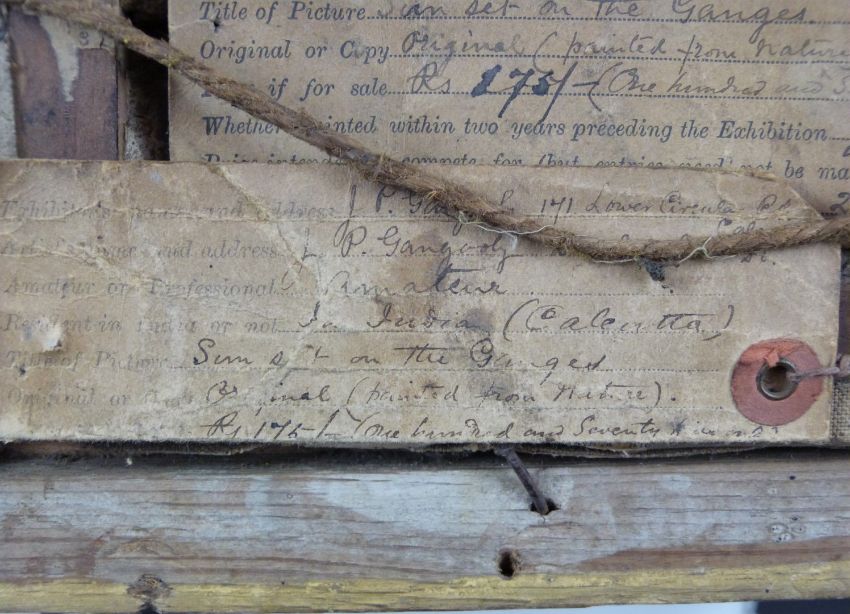 Title of Picture Sun set on the Ganges.
Original or Copy Original (painted from Nature
if for sale Rs 175/- (One hundred and
Whether painted within two years preceding the Exhibition
compete for (but entries need not be ma
Exhibitor's name and address J. P. 171 Lower Circular Rd
Artist's name and address J. P. Gangooly
Amateur or Professional Amateur
Resident in India or not In India (Calcutta)
Title of Picture Sun set on the Ganges
Original or Original (painted from Nature).
Rs 175/- (One hundred and Seventy